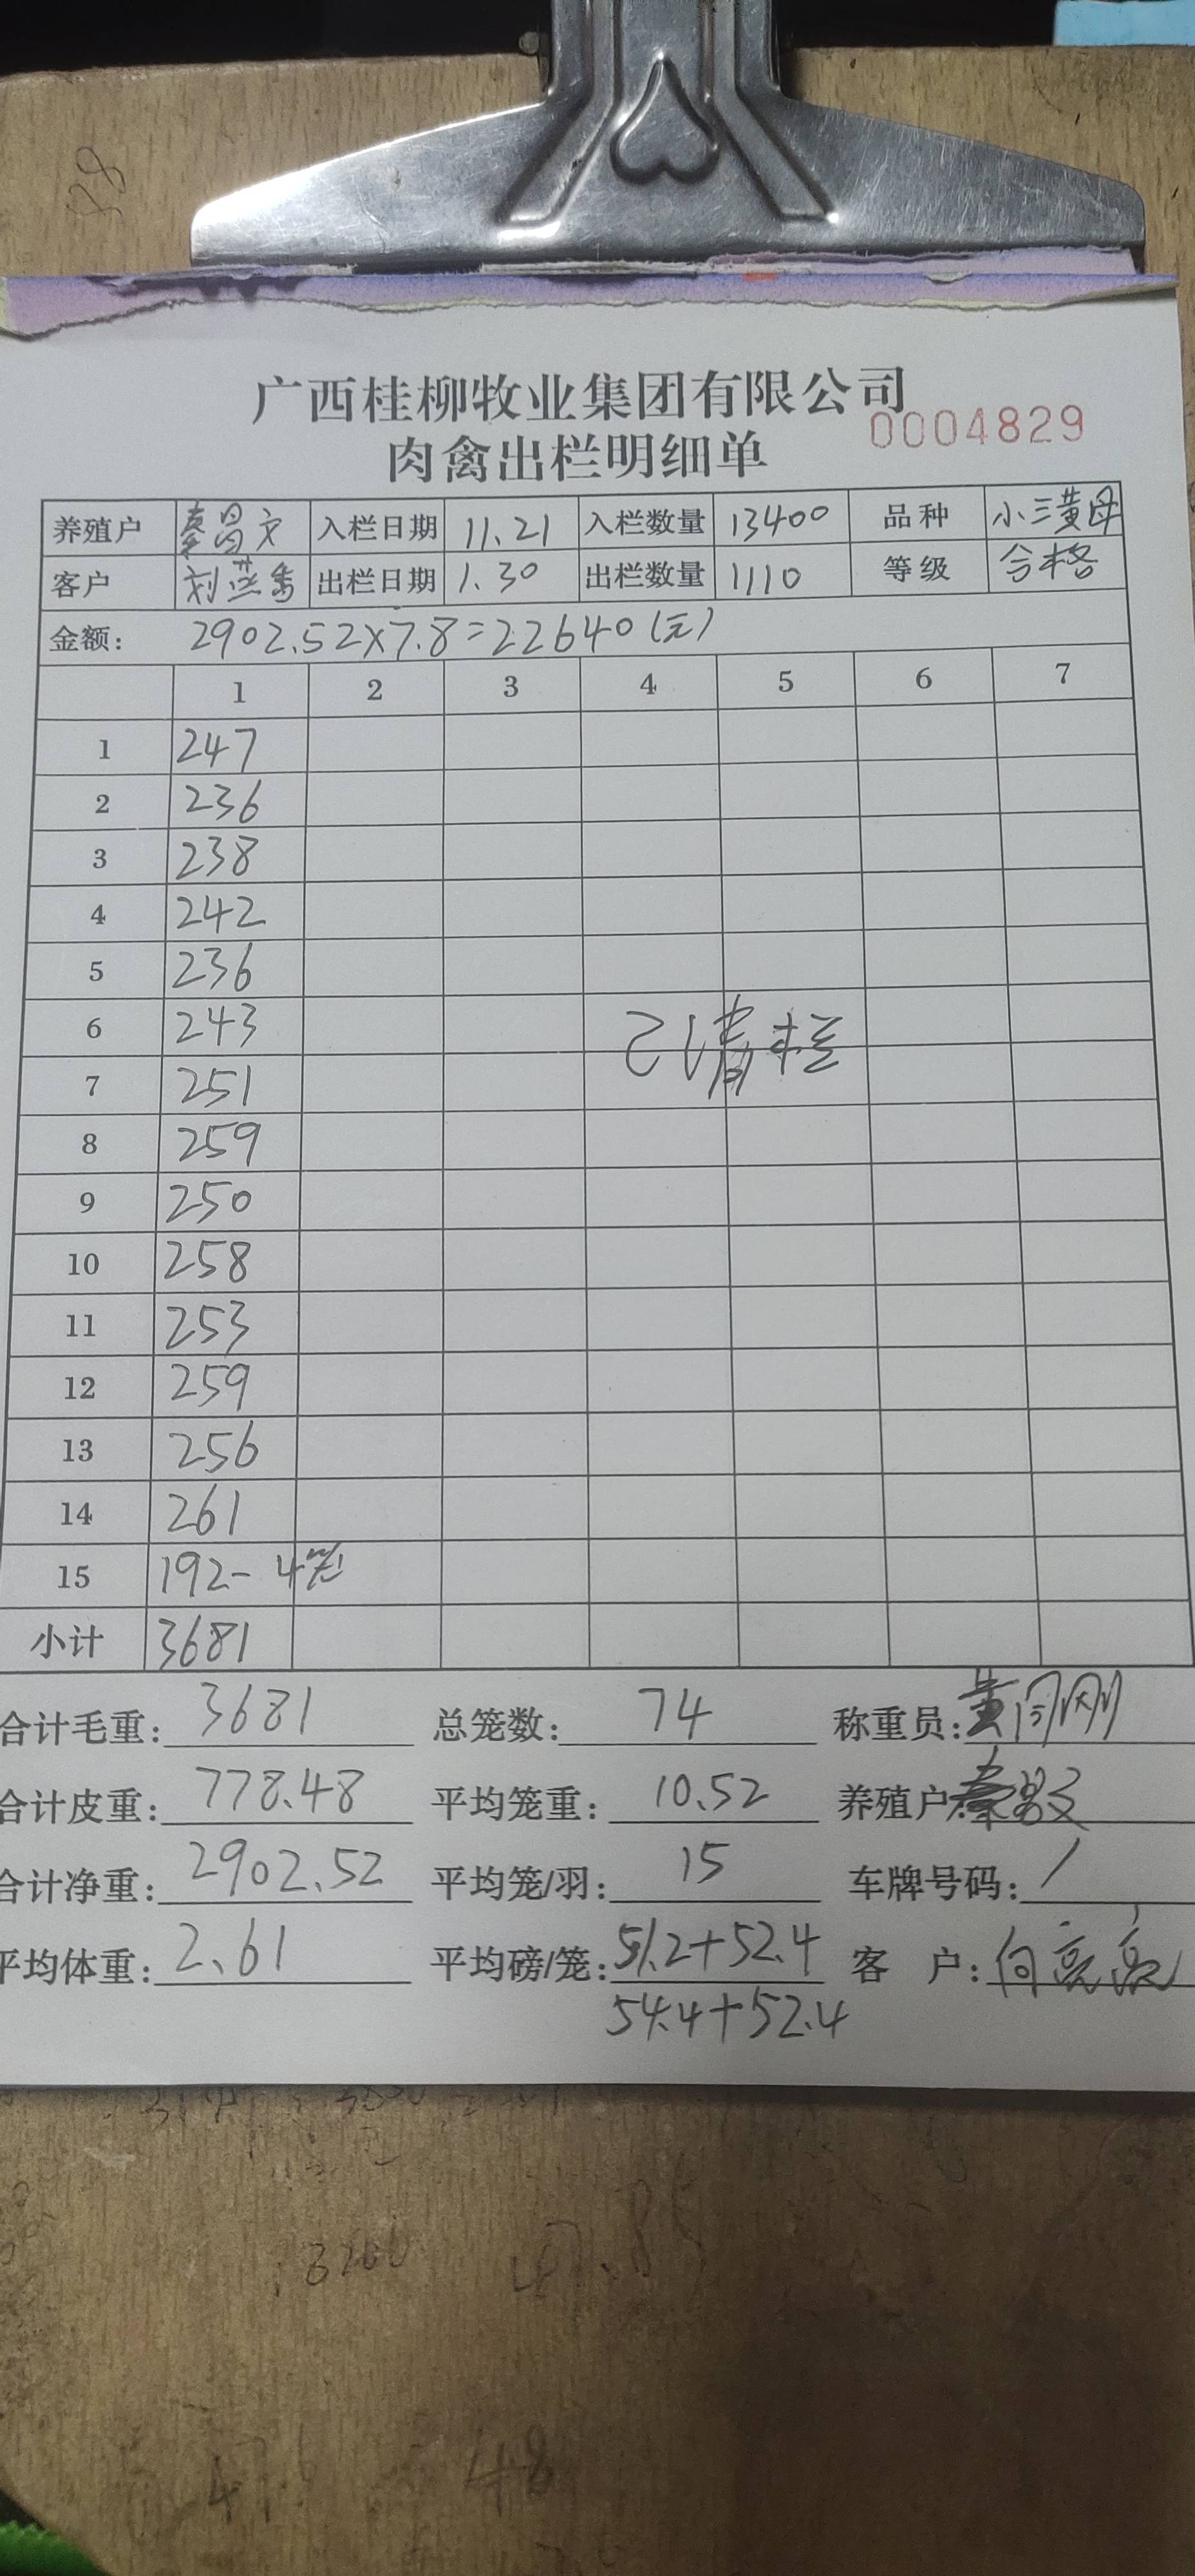 广西桂柳牧业集团有限公司
肉禽出栏明细单 0004829
养殖户 秦昌文 入栏日期 11.21 入栏数量 13400 品种 小三黄母
客户 刘燕 出栏日期 1.30 出栏数量 1110 等级 合格
金额: 2902.52×7.8=22640(元)
1 2 3 4 5 6 7
1 247
2 236
3 238
4 242
5 236
6 243
已清栏
7 251
8 259
9 250
10 258
11 253
12 259
13 256
14 261
15 192-4笼
小计 3681
合计毛重: 3681 总笼数: 74 称重员: 黄刚
合计皮重: 778.48 平均笼重: 10.52 养殖户: 秦昌文
合计净重: 2902.52 平均笼/羽: 15 车牌号码: /
平均体重: 2.61 平均磅/笼: 51.2+52.4 客 户: 向亮
54.4+52.4
48